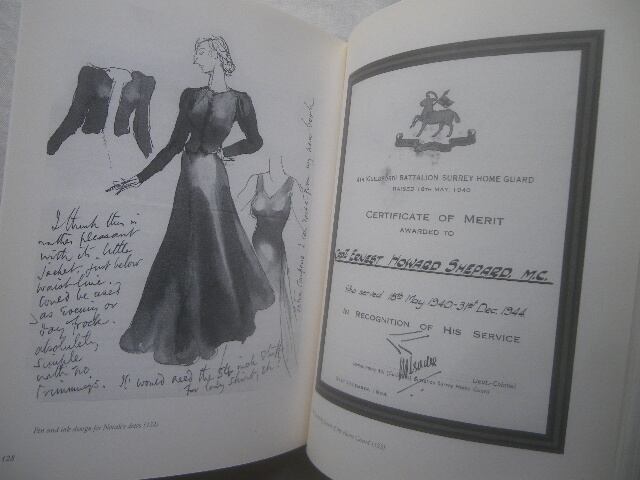 I think this is
rather pleasant
with its little
jacket, just below
waist-line.
Could be used
as evening or
day frock.
absolutely
simple
with no
trimmings. It would need the 54 inch stuff
for long skirt, etc.
from my new book
Pen and ink design for Norah's dress (122)
128
4TH (GUILDFORD) BATTALION SURREY HOME GUARD
RAISED 18TH MAY, 1940
CERTIFICATE OF MERIT
AWARDED TO
Capt. ERNEST HOWARD SHEPARD, MC.
who served 18th May 1940-31st Dec. 1944
IN RECOGNITION OF HIS SERVICE
Lieut.-Colonel
Surrey Home Guard
31ST DECEMBER, 1944
Home Guard (123)